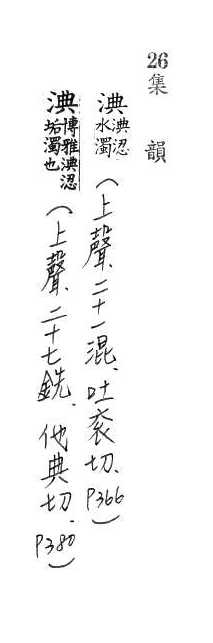 26集韻
淟淟涊水濁(上聲、二十一混、吐袞切、P366)
淟博雅淟涊垢濁也(上聲、二十七銑、他典切、P380)